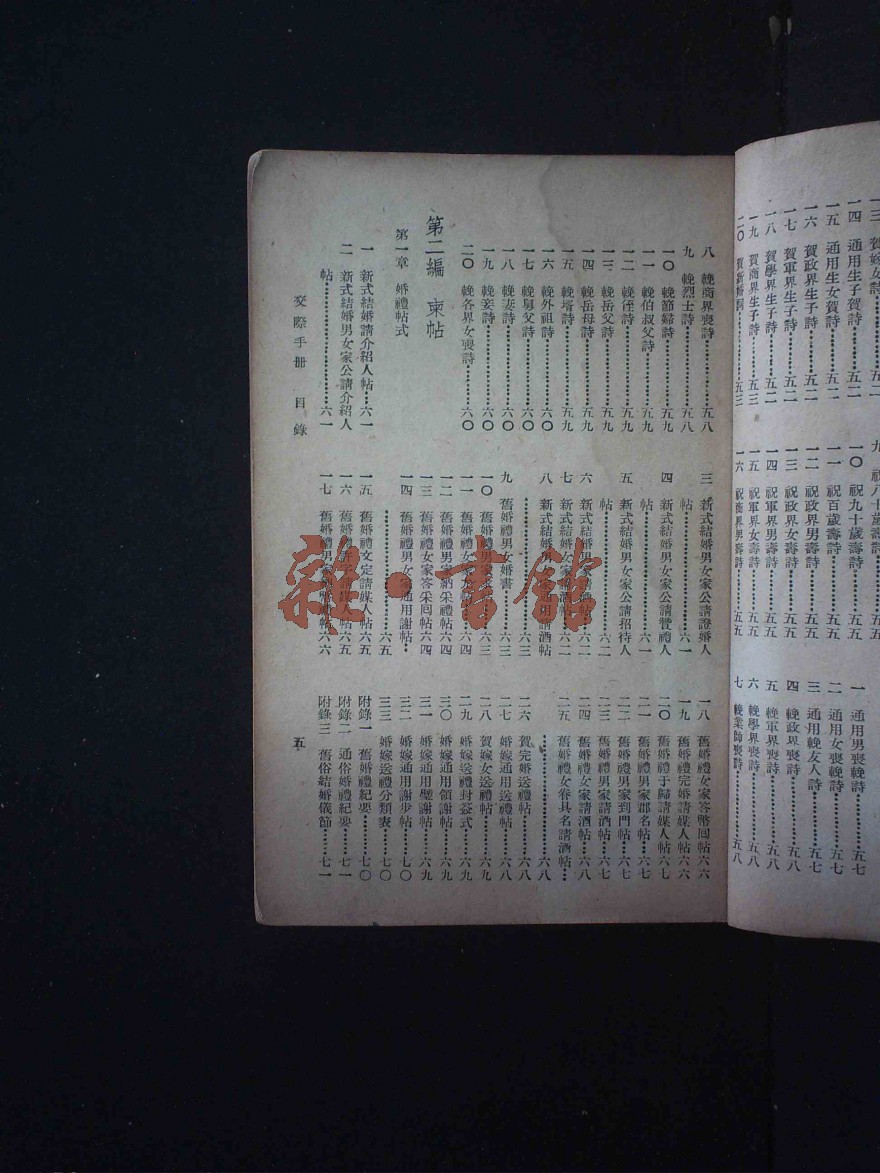 一三 賀嫁女詩……五二
一四 通用生子賀詩……五二
一五 通用生女賀詩……五二
一六 賀政界生子詩……五二
一七 賀軍界生子詩……五二
一八 賀學界生子詩……五二
一九 賀商界生子詩……五三
二〇 賀新……五三
九 祝八十歲壽詩……五五
一〇 祝九十歲壽詩……五五
一一 祝百歲壽詩……五五
一二 祝政界男壽詩……五五
一三 祝政界女壽詩……五五
一四 祝軍界男壽詩……五五
一五 祝軍界女壽詩……五五
一六 祝商界男壽詩……五五
一 通用男喪輓詩……五七
二 通用女喪輓詩……五七
三 通用輓友人詩……五七
四 輓政界喪詩……五八
五 輓軍界喪詩……五八
六 輓學界喪詩……五八
七 輓業師喪詩……五八
八 輓商界喪詩……五八
九 輓烈士詩……五八
一〇 輓節婦詩……五九
一一 輓伯叔父詩……五九
一二 輓侄詩……五九
一三 輓岳父詩……五九
一四 輓岳母詩……五九
一五 輓壻詩……五九
一六 輓外祖詩……六〇
一七 輓舅父詩……六〇
一八 輓妻詩……六〇
一九 輓妾詩……六〇
二〇 輓各界女喪詩……六〇
第二編 柬帖
第一章 婚禮帖式
一 新式結婚請介紹人帖…六一
二 新式結婚男女家公請介紹人
帖……六一
三 新式結婚男女家公請證婚人
帖……六一
四 新式結婚男女家公請贊禮人
帖……六一
五 新式結婚男女家公請招待人
帖……六二
六 新式結婚男家請酒帖…六二
七 新式結婚女家請酒帖…六二
八 新式結婚男女家通用請酒帖
……六三
九 舊婚禮男女婚書……六三
一〇 舊婚禮男家……六三
一一 舊婚禮女家……六四
一二 舊婚禮男家納采禮帖…六四
一三 舊婚禮女家答采回帖六四
一四 舊婚禮男女家通用謝帖…
……六五
一五 舊婚禮文定請媒人帖六五
一六 舊婚禮請媒人帖六五
一七 舊婚禮男家帖六六
一八 舊婚禮女家答幣回帖六六
一九 舊婚禮完婚請媒人帖六六
二〇 舊婚禮于歸請媒人帖六七
二一 舊婚禮男家郡名帖…六七
二二 舊婚禮男家到門帖…六七
二三 舊婚禮男家請酒帖…六七
二四 舊婚禮女家請酒帖…六八
二五 舊婚禮女眷具名請酒帖…
……六八
二六 賀完婚送禮帖……六八
二七 婚嫁通用送禮帖……六八
二八 賀嫁女送禮帖……六九
二九 婚嫁送禮封簽式……六九
三〇 婚嫁通用領謝帖……六九
三一 婚嫁通用璧謝帖……六九
三二 婚嫁通用謝步帖……七〇
三三 婚嫁送禮分類表……七〇
附錄一 舊婚禮紀要……七〇
附錄二 通俗婚禮紀要……七一
附錄三 舊俗結婚儀節……七一
交際手冊 目錄
五
雜·書館